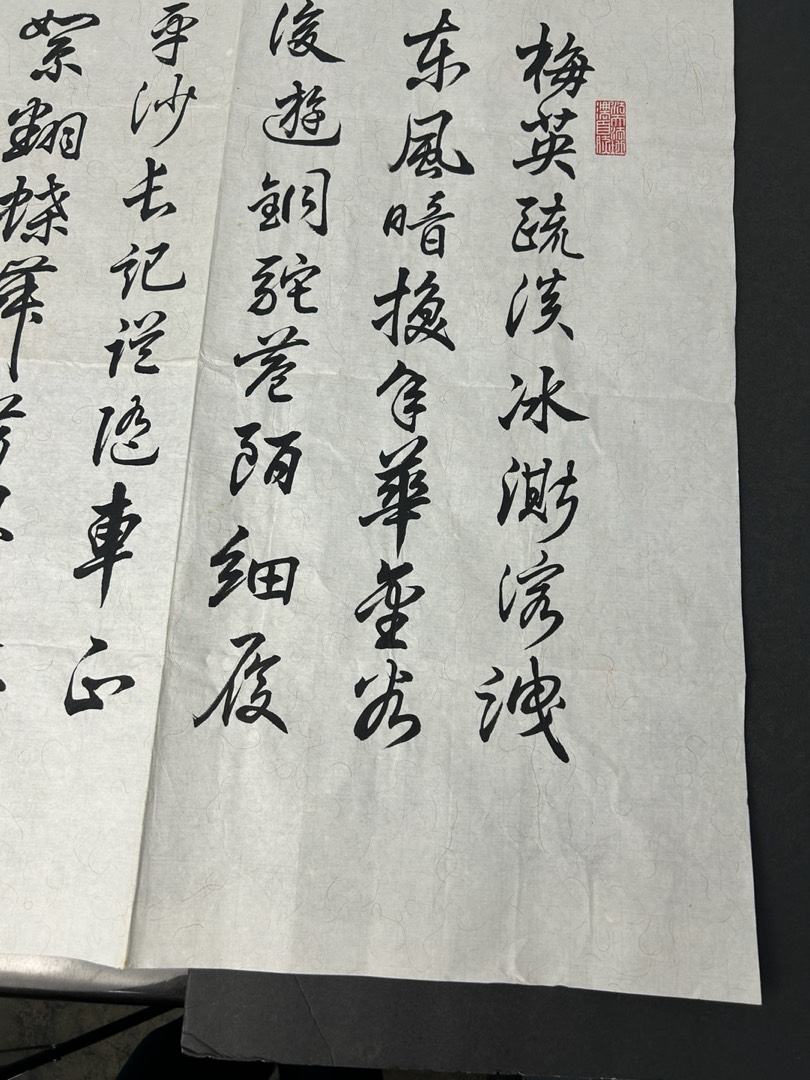 梅英疏淡冰澌溶洩
东風暗換年華金谷
俊遊銅駝巷陌細履
平沙长記誤随車正
絮翻蝶舞芳思